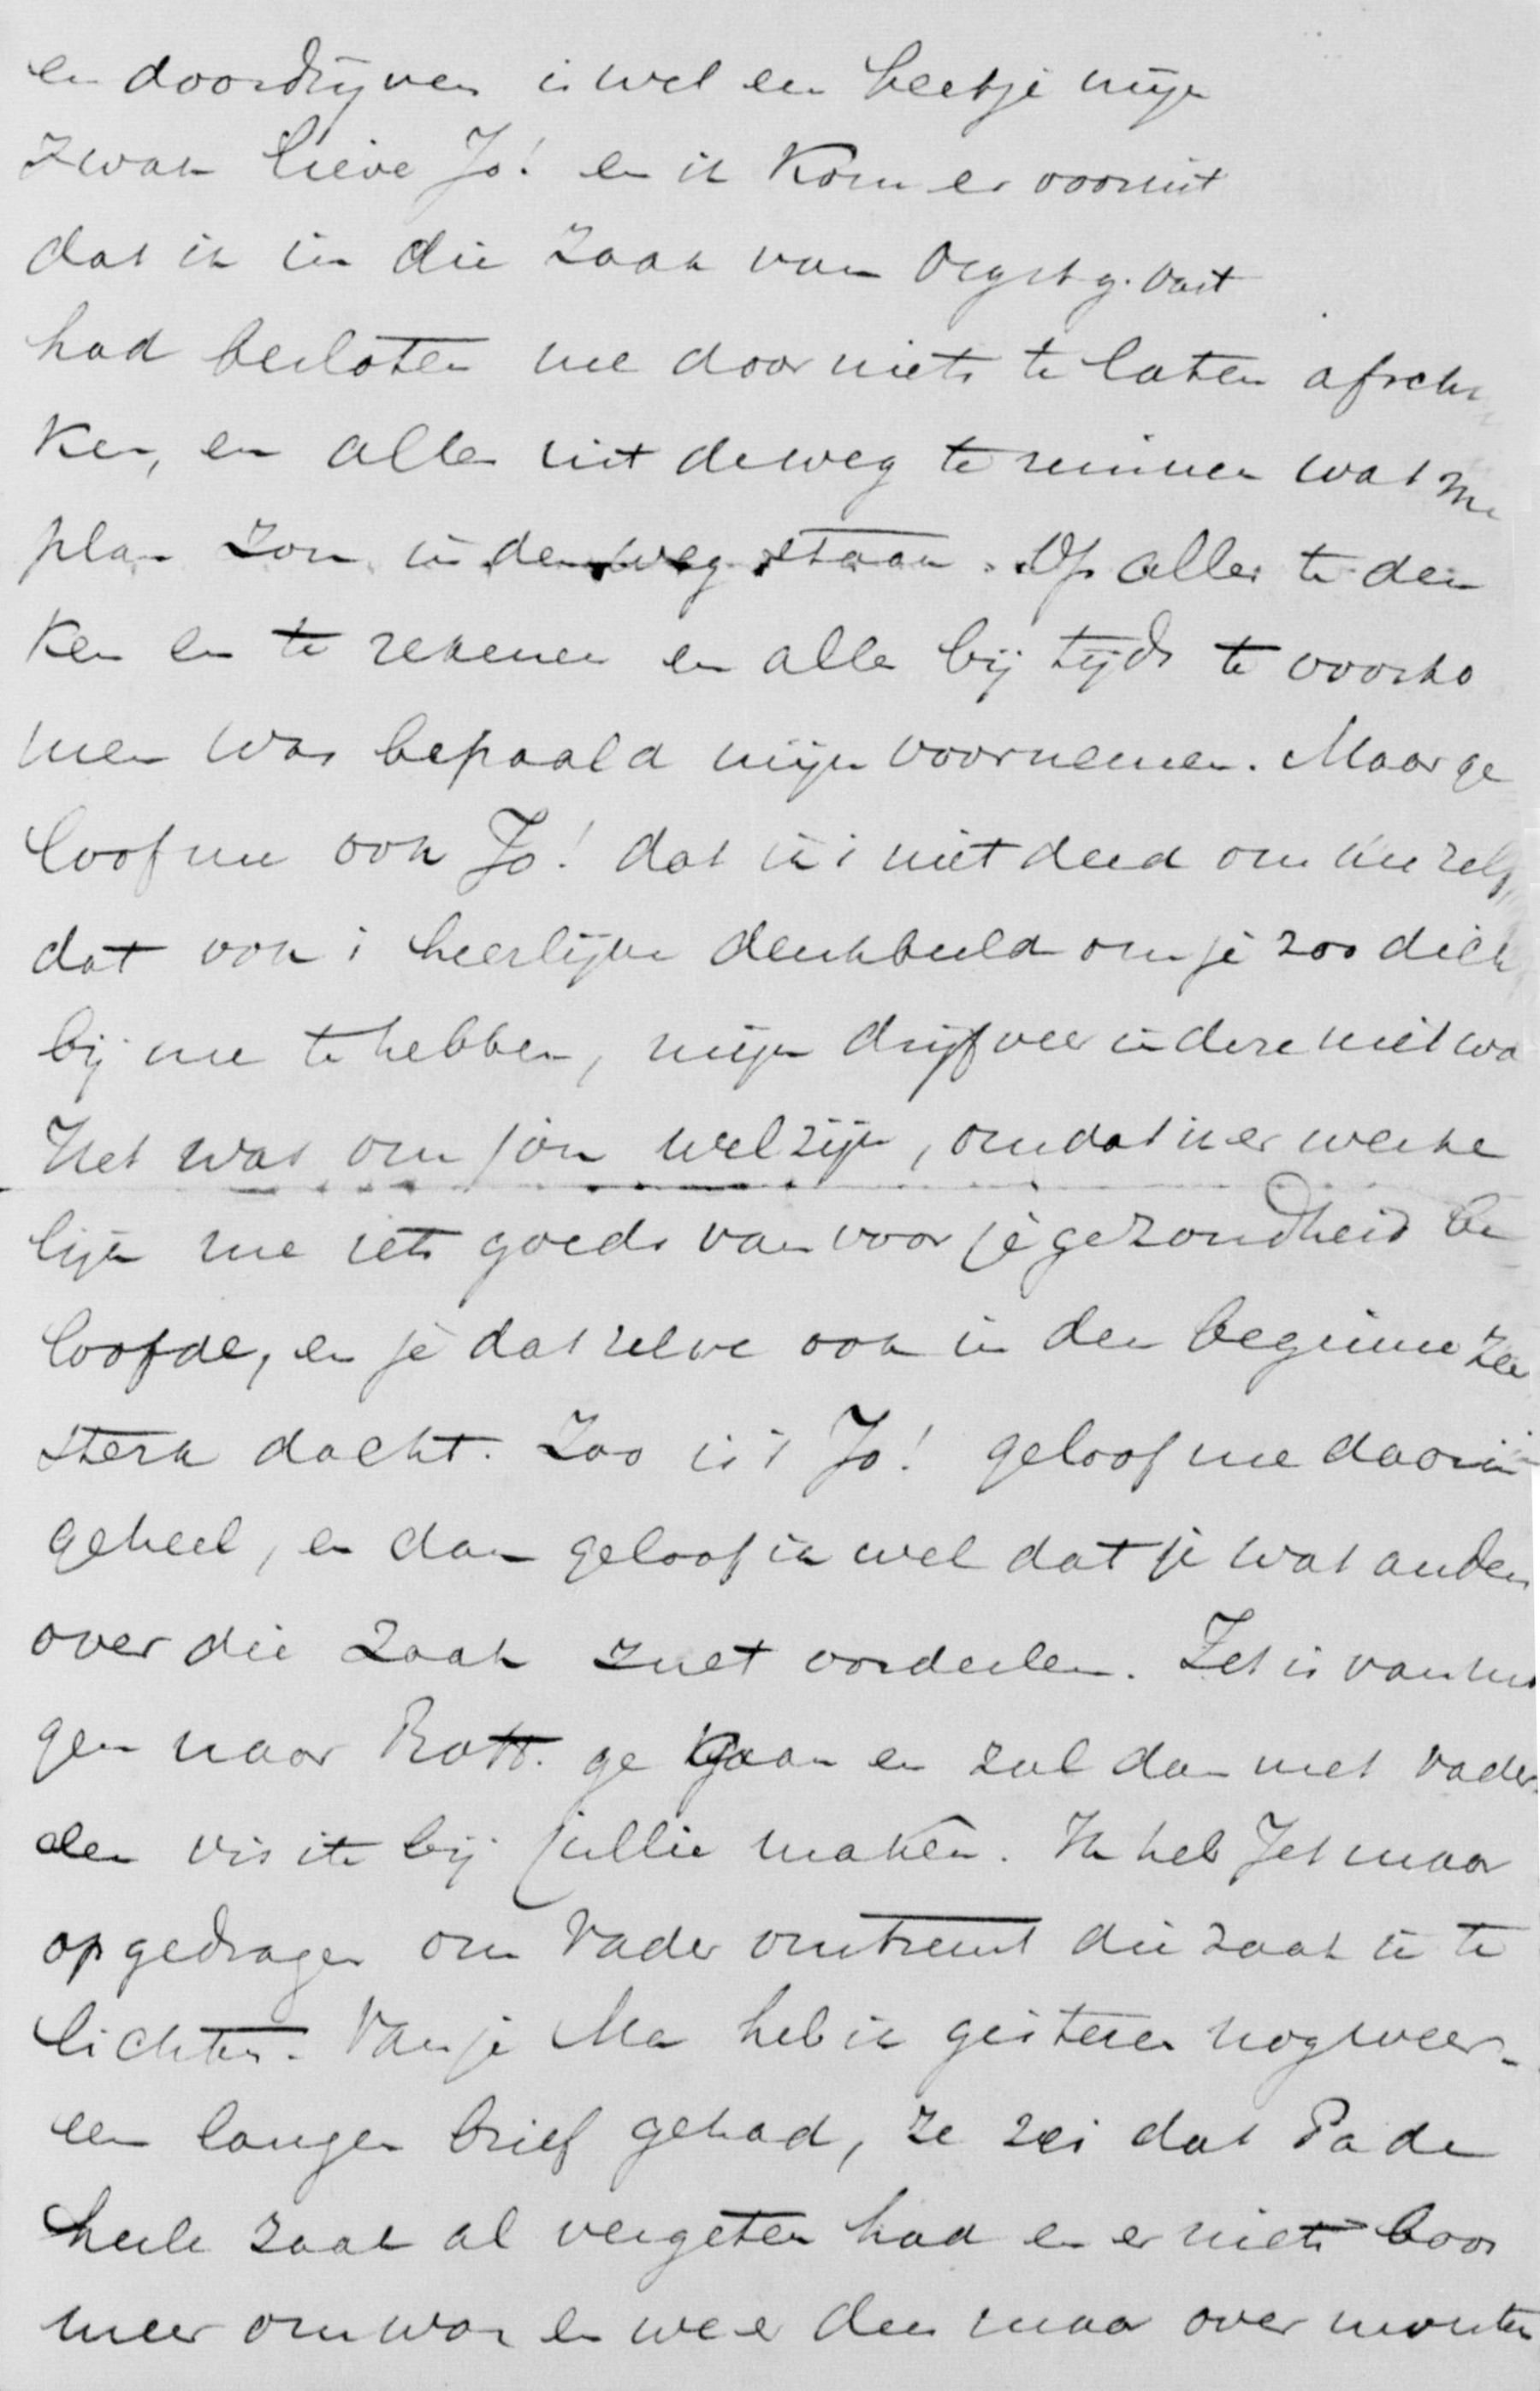 en doordrijven is wel een beetje mijn
zwak lieve Jo! en ik kom er vooruit
dat ik in die zaak van Oegstg. vast
had besloten me door niets te laten afschr
ken, en alles uit de weg te ruimen wat m
plan zou in den weg staan. Op alles te den
ken en te rekenen en alles bij tijds te voorko
men was bepaald mijn voornemen. Maar ge
loof me ook Jo! dat ik 't niet deed om me zelf,
dat ook 't heerlijke denkbeeld om je zoo dich
bij me te hebben, mijn drijfveer in deze niet wa
Het was om jou welzijn, omdat ik er werke
lijk me iets goeds van voor je gezondheid be
loofde, en je dat zelve ook in den beginne zee
sterk dacht. Zoo is 't Jo! geloof me daarin
geheel, en dan geloof ik wel dat je wat anders
over die zaak zult oordeelen. Jet is van mor
gen naar Rott. ge gaan en zal dan met vader
een visite bij jullie maken. Ik heb Jet maar
opgedragen om Vader omtrent die zaak in te
lichten. Van je Ma heb ik gisteren nog weer
een langen brief gehad, ze zei dat Pa de
heele zaak al vergeten had en er niets boos
meer om was en we er dus maar over moeten